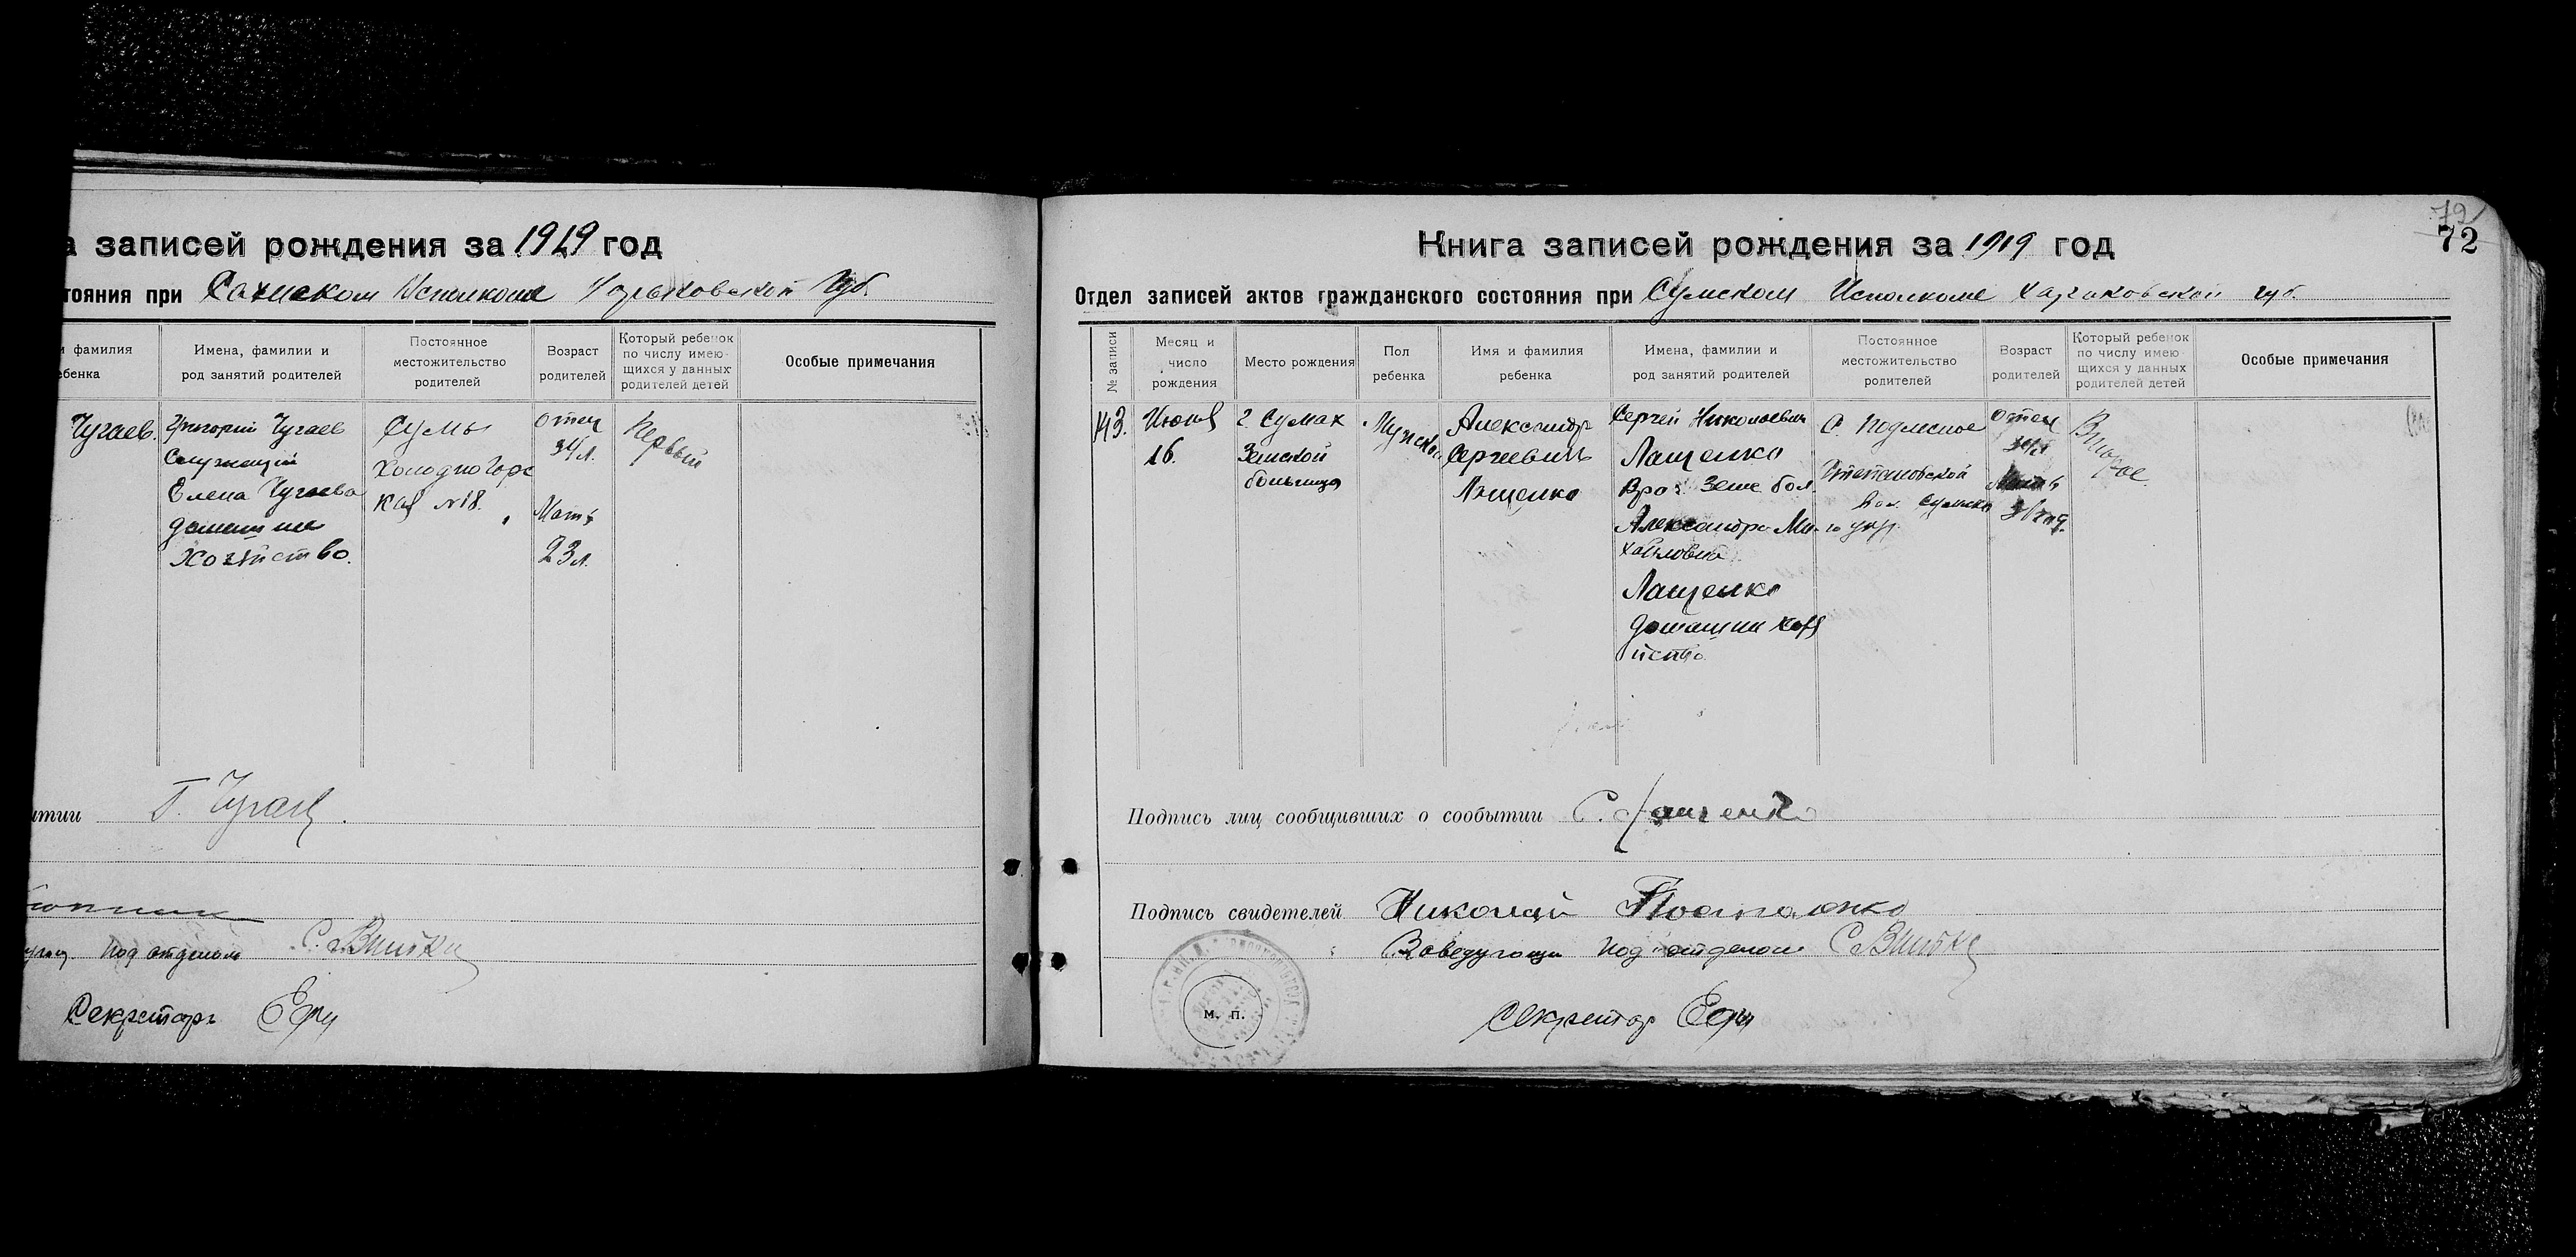 а записей рождения за 1919 год
тояния при Исполкоме Харьковской Губ.
и фамилия
ебенка
Имена, фамилии и
род занятий родителей
Постоянное
местожительство
родителей
Возраст
родителей
Который ребенок
по числу имею-
щихся у данных
родителей детей
Особые примечания
Чугаев.
Григорий Чугаев
Служащий
Елена Чугаева
домашнее
хозяйство.
Сумы
Холодногорс
кая №18.
Отец
34 л.
Мать
23 л.
Первый
ытии Г. Чугаев.
Под отделом С. Внитки
Секретарь
72
72
Книга записей рождения за 1919 год
Отдел записей актов гражданского состояния при Сумском Исполкоме Харьковской губ.
№ записи
Месяц и
число
рождения
Место рождения
Пол
ребенка
Имя и фамилия
ребенка
Имена, фамилии и
род занятий родителей
Постоянное
местожительство
родителей
Возраст
родителей
Который ребенок
по числу имею-
щихся у данных
родителей детей
Особые примечания
143.
Июня
16.
г. Сумах
Земской
больница
Мужской
Александр
Сергеевич
Лащенко
Сергей Николаевич
Лащенко
Врач Земс бол.
Александра Ми-
хайловна
Лащенко
домашни хозя
йство
С. Подлесное
Степановской
Вол. Сумско
го уезд.
Отец
34 л
Мать
Второе
Подпись лиц сообщивших о сообытии С. Лащенко
Подпись свидетелей Николай
Заведующи Под отделом С. Внитки
М. П.
Секретар